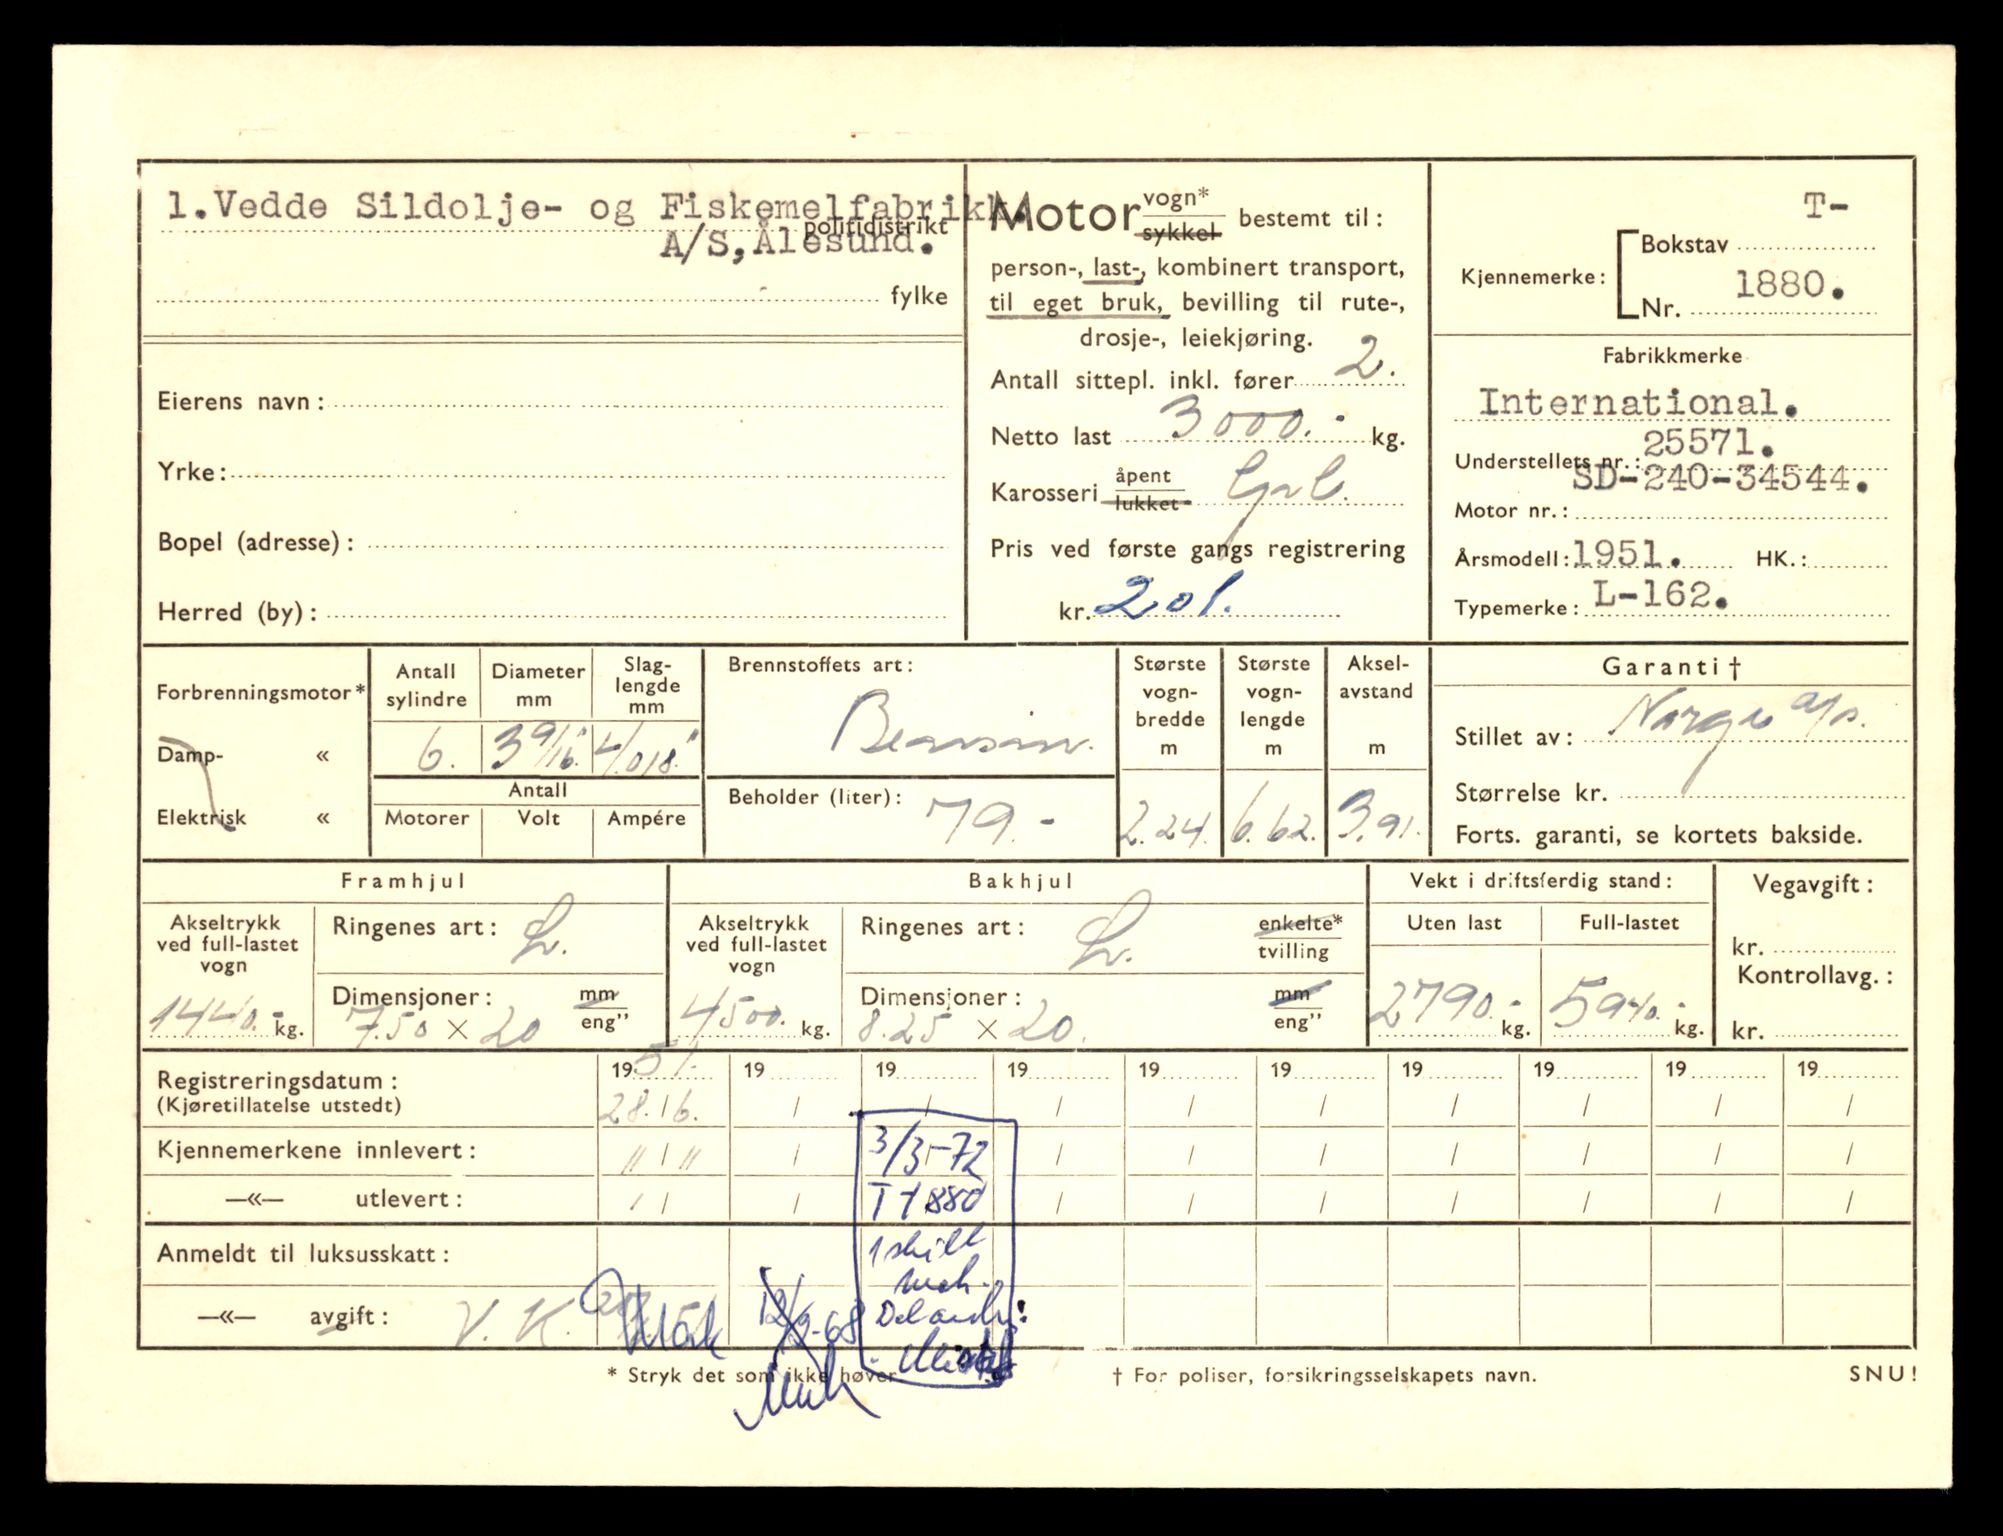 1.Vedde Sildolje- og Fiskemelfabrikk.
politidistrikt
A/S,Ålesund.
fylke
Eierens navn:
Yrke:
Bopel (adresse):
Herred (by):
Motor vogn* sykkel bestemt til:
person-, last-, kombinert transport,
til eget bruk, bevilling til rute-,
drosje-, leiekjøring.
Antall sittepl. inkl. fører 2.
Netto last 3000.- kg.
Karosseri åpent lukket
Pris ved første gangs registrering
kr. 201.
T-
Kjennemerke: Bokstav
1880.
Nr.
Fabrikkmerke
International.
25571.
Understellets nr.:
SD-240-34544.
Motor nr.:
Årsmodell: 1951. HK.:
Typemerke: L-162.
Forbrenningsmotor*
Damp- «
Elektrisk «
Antall sylindre
6.
Diameter mm
3 9/16"
Slag-lengde mm
4.018"
Antall
Motorer Volt Ampére
Brennstoffets art:
Bensin.
Beholder (liter): 79.-
Største vogn-bredde m
2.24.
Største vogn-lengde m
6.62.
Aksel-avstand m
3.91.
Garanti †
Stillet av: Norge a/s.
Størrelse kr.
Forts. garanti, se kortets bakside.
Framhjul
Akseltrykk ved full-lastet vogn
1440.- kg.
Ringenes art: L.
Dimensjoner: mm eng"
7.50 × 20
Bakhjul
Akseltrykk ved full-lastet vogn
4500. kg.
Ringenes art: L. enkelte* tvilling
Dimensjoner: mm eng"
8.25 × 20.
Vekt i driftsferdig stand:
Uten last Full-lastet
2790.- kg. 5940.- kg.
Vegavgift:
kr.
Kontrollavg.:
kr.
Registreringsdatum: 1951. 19 19 19 19 19 19 19 19 19
(Kjøretillatelse utstedt) 28./6. / / / / / / / / /
Kjennemerkene innlevert: " / " / / / / / / / /
—«— utlevert: / / / / / / / / /
Anmeldt til luksusskatt:
—«— avgift: V. K.
12/9-68
3/3-72
T 1880
1 skilt
* Stryk det som ikke høver
† For poliser, forsikringsselskapets navn.
SNU!